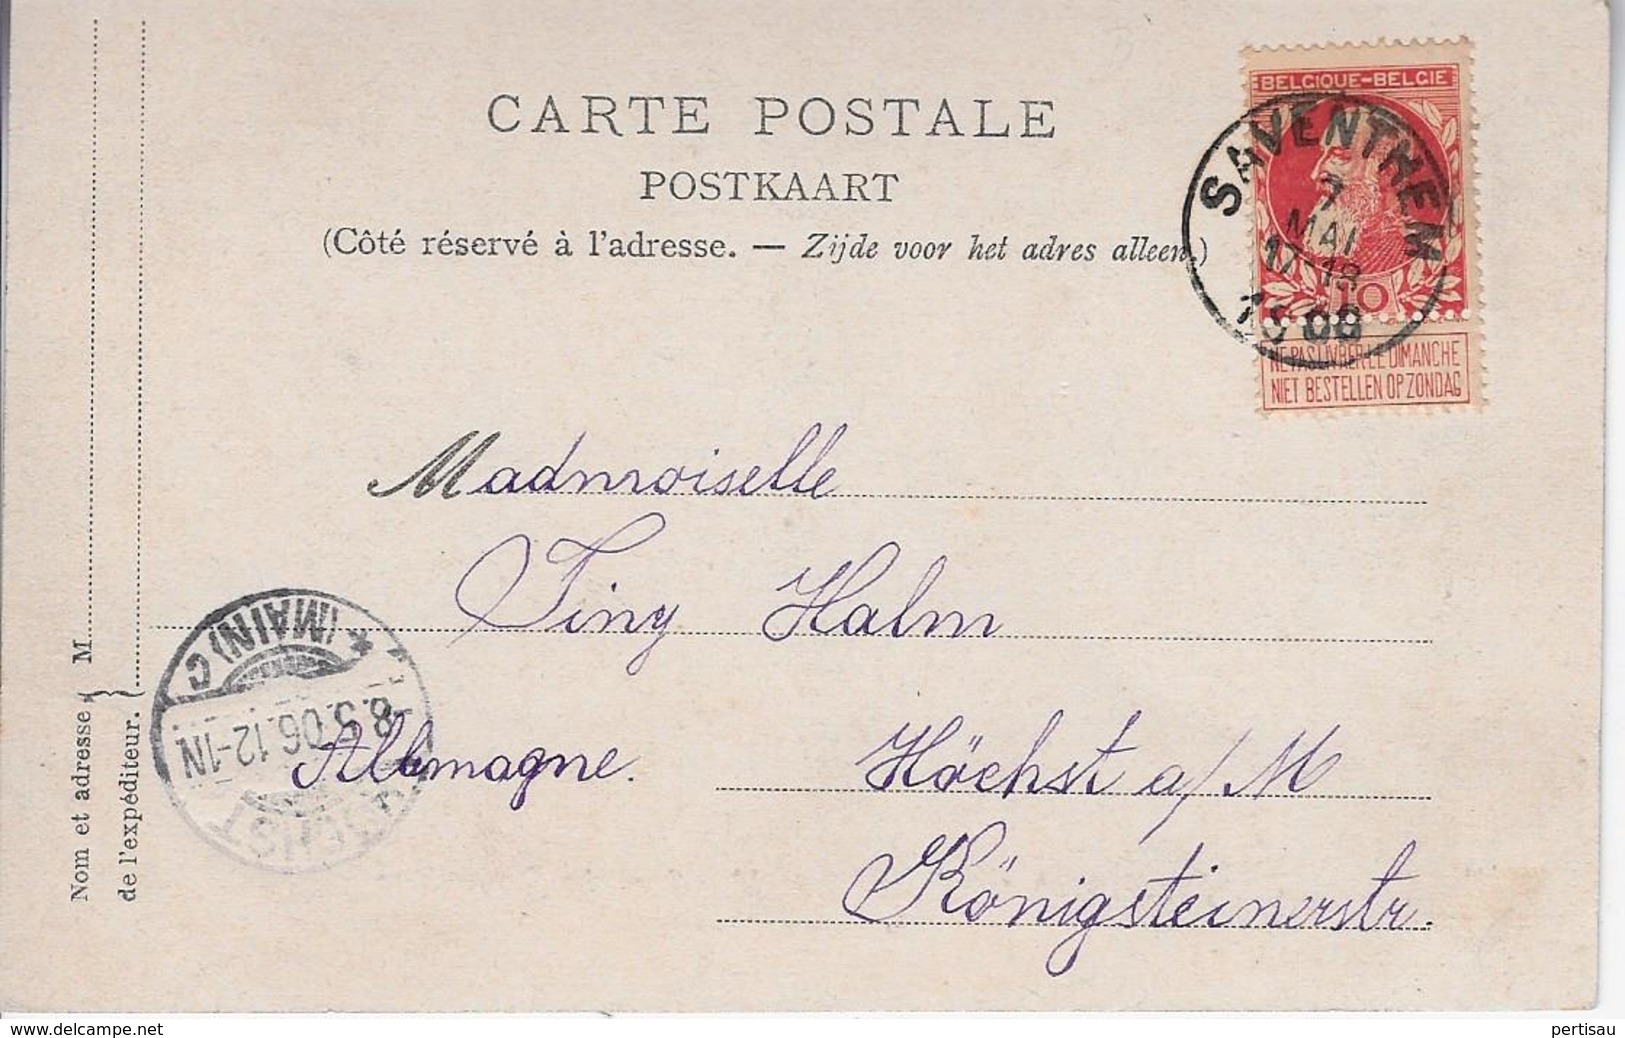 CARTE POSTALE
POSTKAART
(Côté réservé à l'adresse. — Zijde voor het adres alleen.)
BELGIQUE-BELGIE
SAVENTHEM
7
MAI
17-18
10
NE PAS LIVRER LE DIMANCHE
NIET BESTELLEN OP ZONDAG
Madmoiselle
Tiny Halm
Allemagne.
Höchst a/M
Königsteinerstr.
(MAIN) C
8.5.06.12-1N
Nom et adresse M
de l'expéditeur.
delcampe.net
pertisau